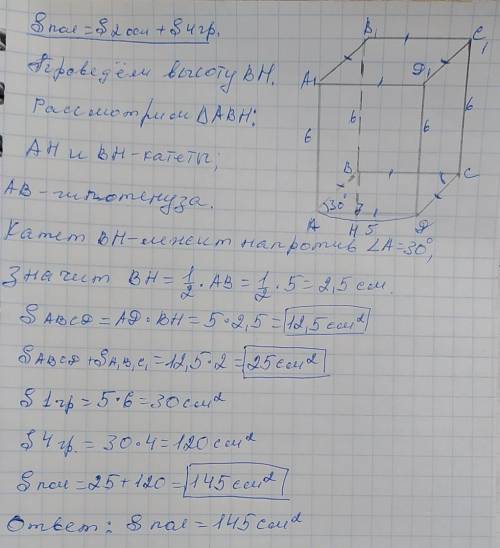 Sпол = S2осн + S4гр.
Проведём высоту BH.
Рассмотрим ΔABH:
AH и BH - катеты;
AB - гипотенуза.
Катет BH - лежит напротив ∠A=30°,
Значит BH = 1/2 · AB = 1/2 · 5 = 2,5 см.
SABCD = AD · BH = 5 · 2,5 = 12,5 см²
SABCD + SA₁B₁C₁ = 12,5 · 2 = 25 см²
S1гр = 5·6 = 30 см²
S4гр. = 30·4 = 120 см²
Sпол = 25 + 120 = 145 см²
Ответ: Sпол = 145 см²
B₁
C₁
A₁
D₁
6
6
6
6
B
C
30°
A
H
5
D